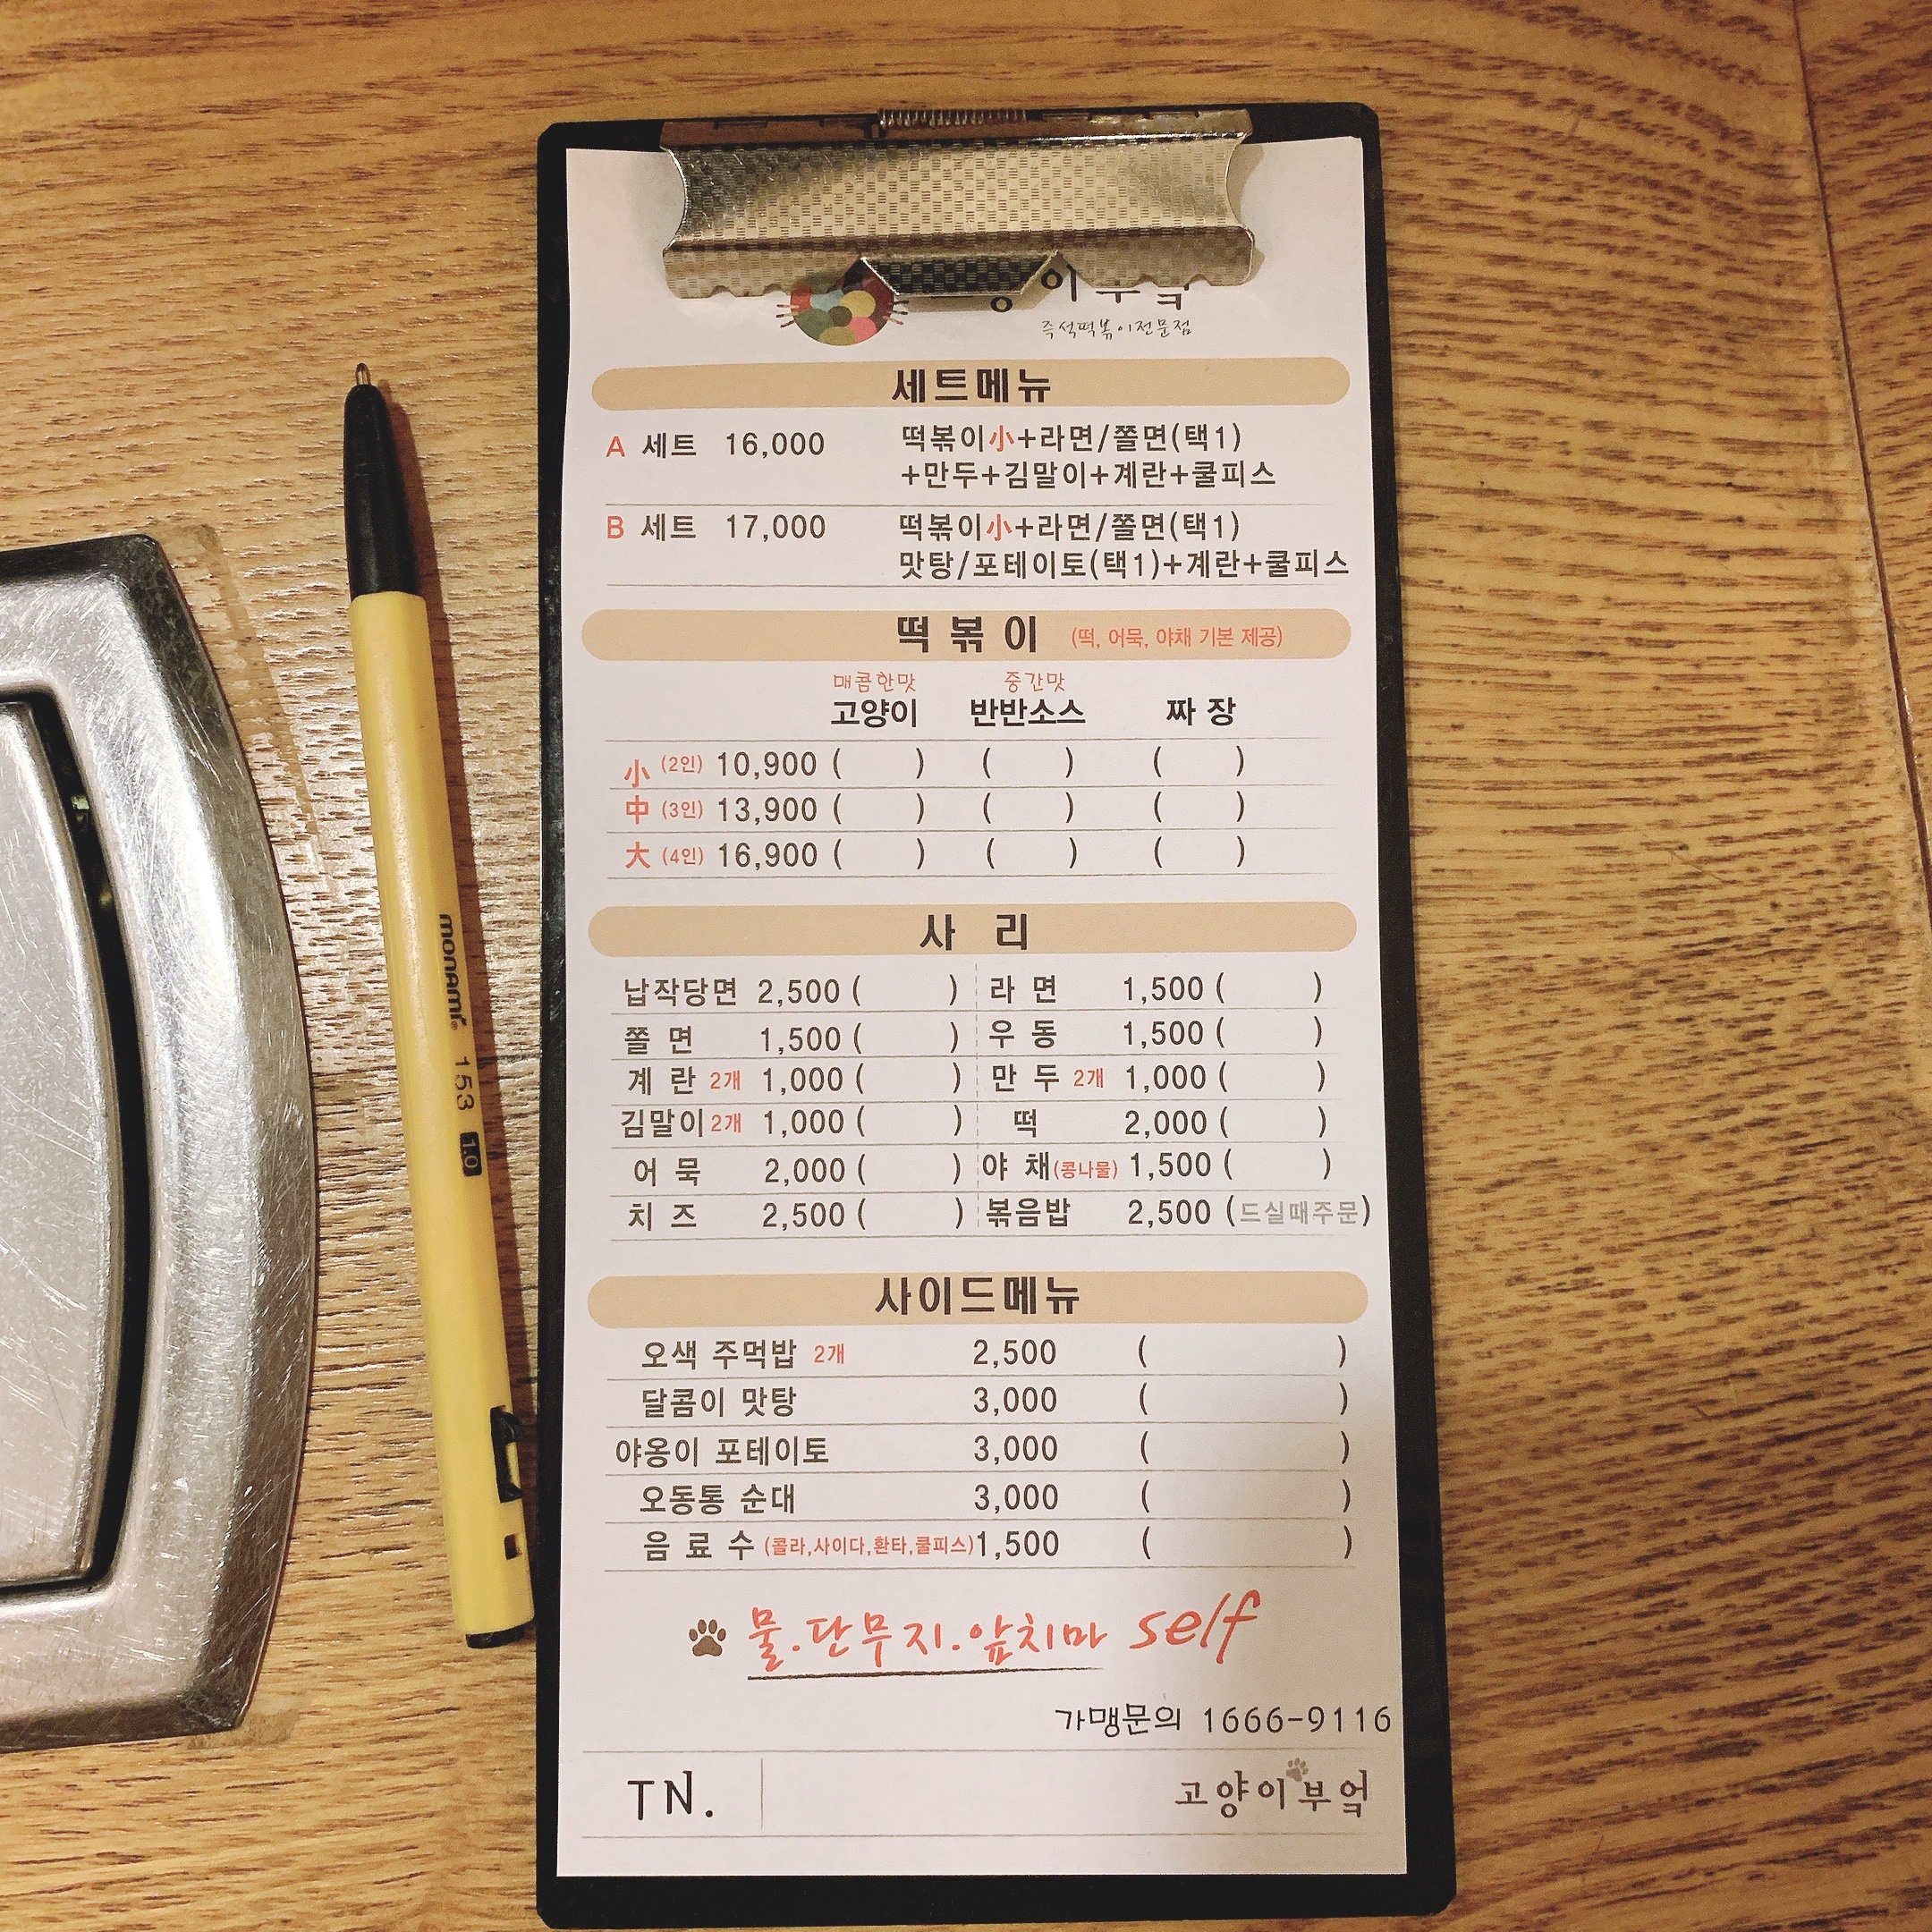 즉석떡볶이전문점
세트메뉴
A 세트 16,000 떡볶이小+라면/쫄면(택1)
+만두+김말이+계란+쿨피스
B 세트 17,000 떡볶이小+라면/쫄면(택1)
맛탕/포테이토(택1)+계란+쿨피스
떡볶이 (떡, 어묵, 야채 기본 제공)
매콤한맛 중간맛
고양이 반반소스 짜장
小 (2인) 10,900 ( ) ( ) ( )
中 (3인) 13,900 ( ) ( ) ( )
大 (4인) 16,900 ( ) ( ) ( )
사리
납작당면 2,500 ( ) 라면 1,500 ( )
쫄면 1,500 ( ) 우동 1,500 ( )
계란 2개 1,000 ( ) 만두 2개 1,000 ( )
김말이 2개 1,000 ( ) 떡 2,000 ( )
어묵 2,000 ( ) 야채(콩나물) 1,500 ( )
치즈 2,500 ( ) 볶음밥 2,500 (드실때주문)
사이드메뉴
오색 주먹밥 2개 2,500 ( )
달콤이 맛탕 3,000 ( )
야옹이 포테이토 3,000 ( )
오동통 순대 3,000 ( )
음료수 (콜라,사이다,환타,쿨피스) 1,500 ( )
물.단무지.앞치마 self
가맹문의 1666-9116
TN. 고양이부엌
monami 153 1.0